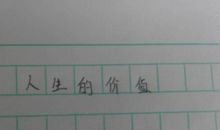 人生的价值